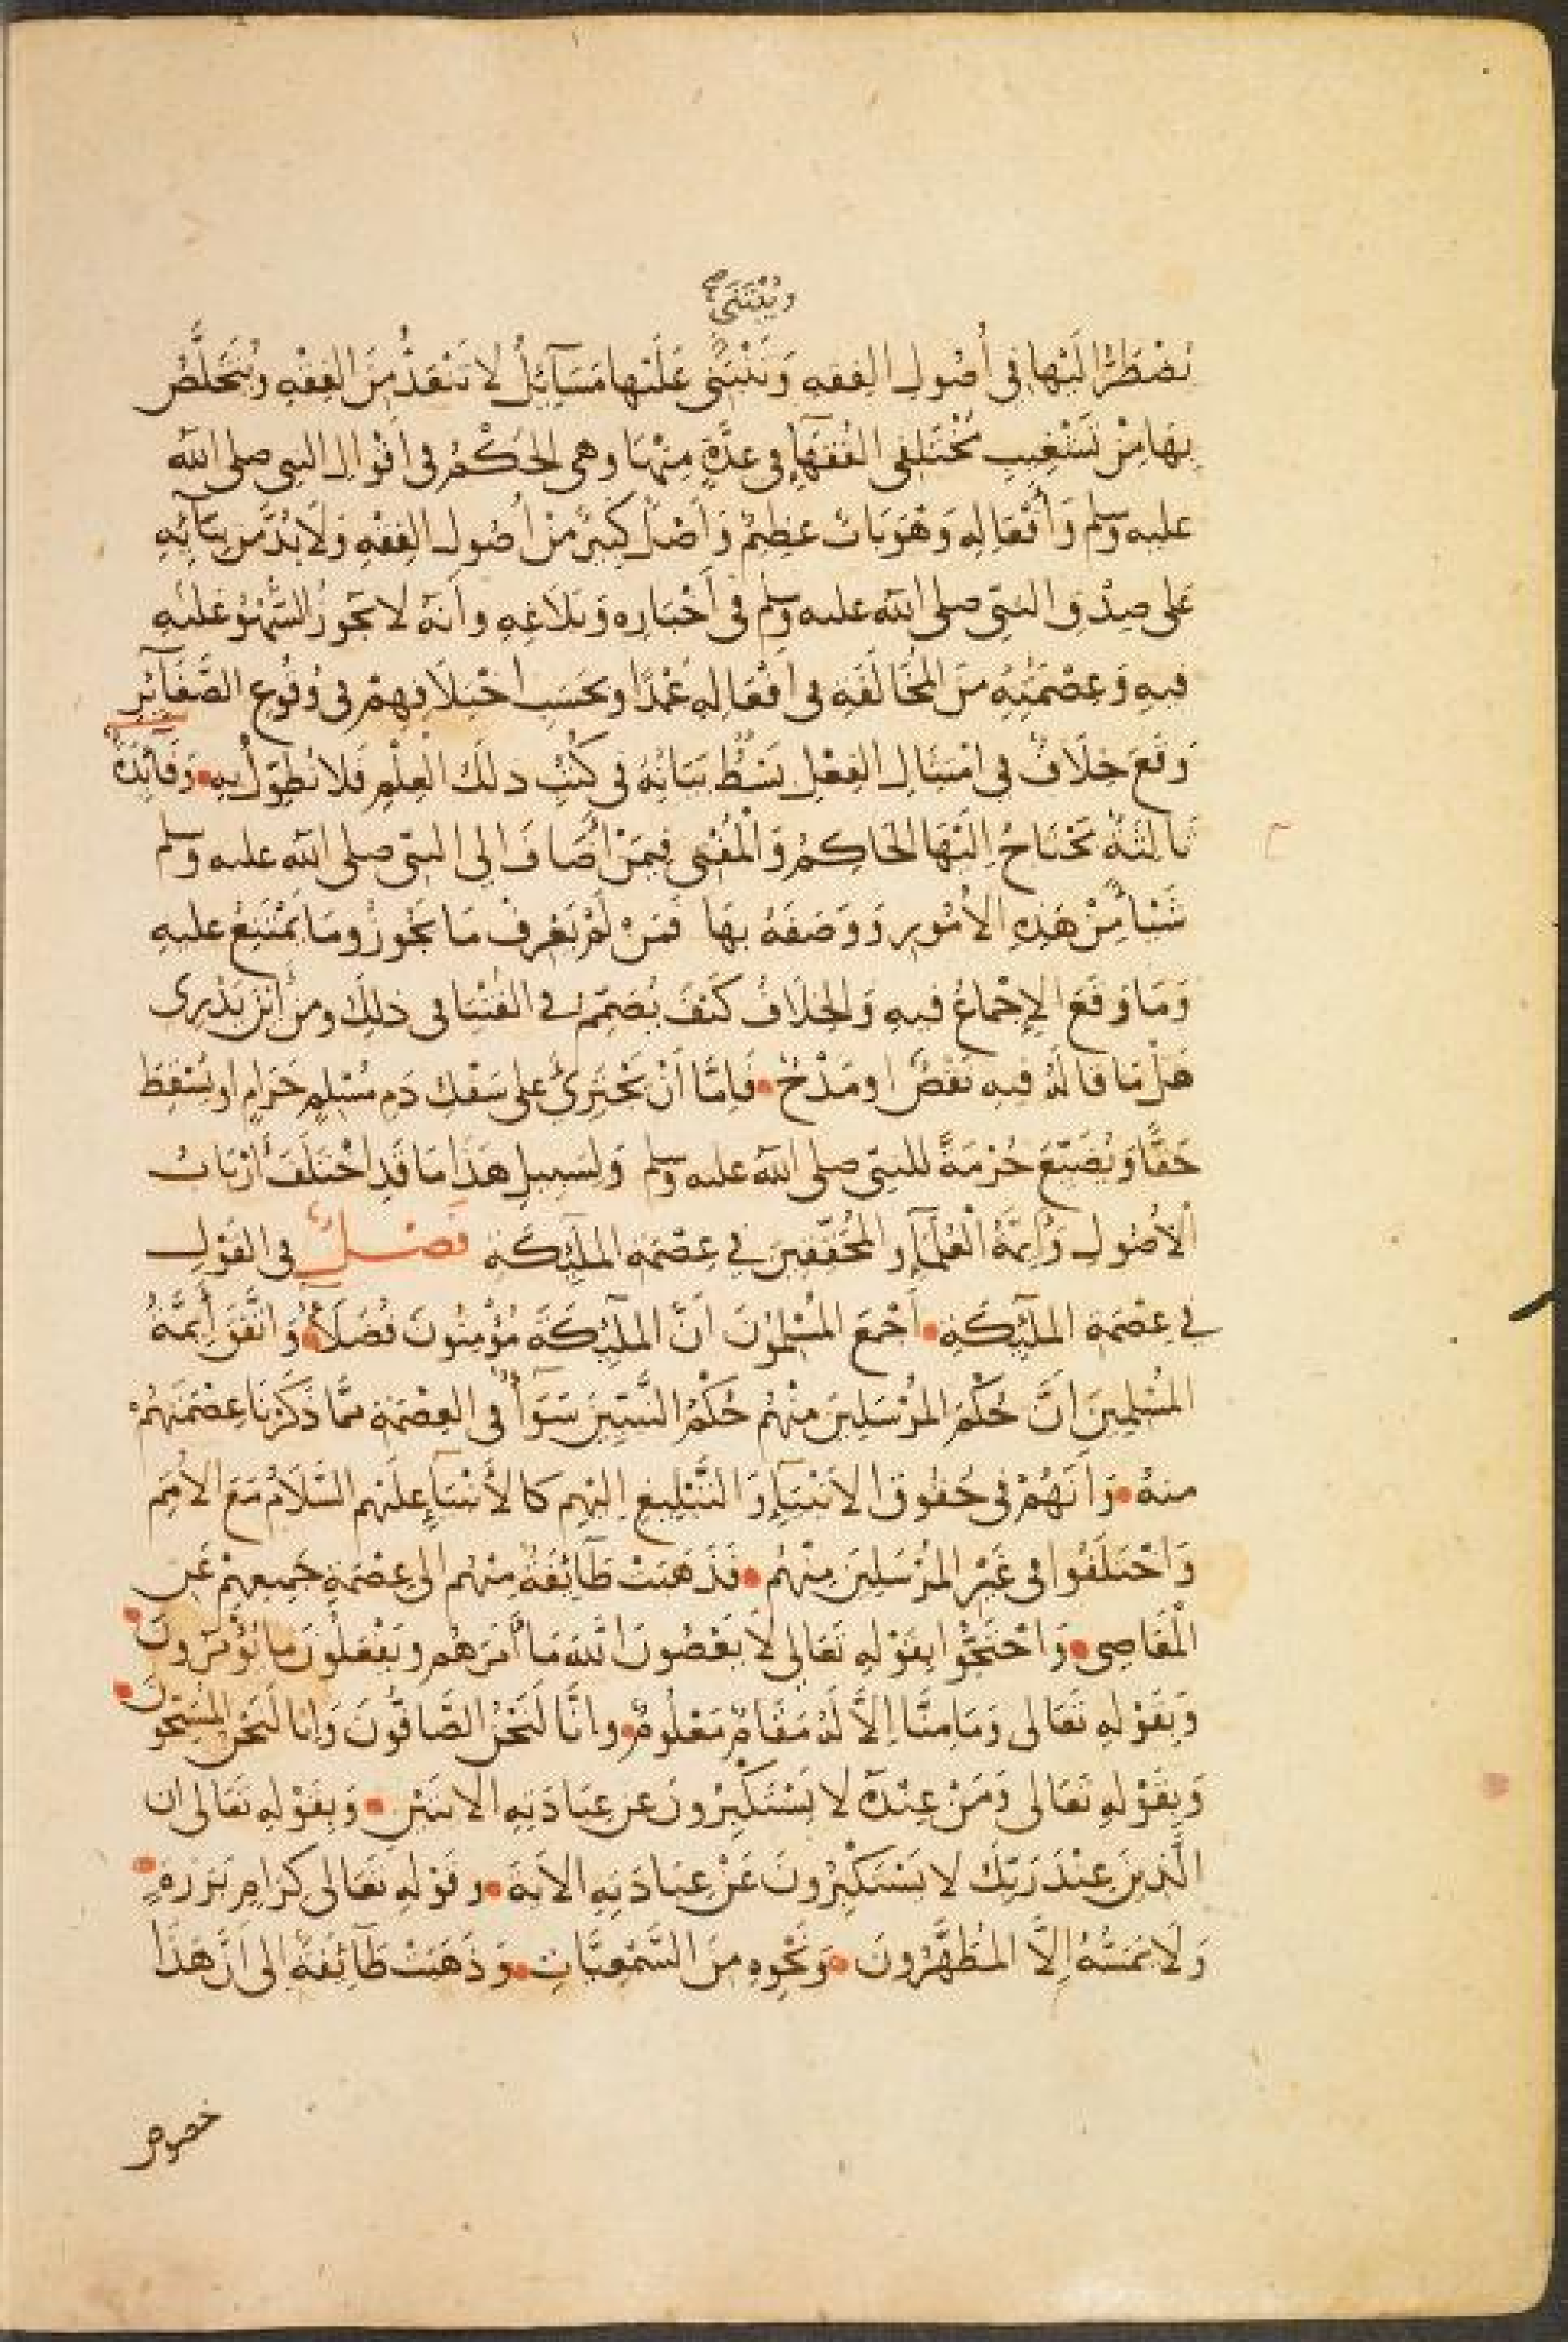 ويبتنى
يُضْطَرُّ الَيْها فِى أُصُولِ الفِقهِ وَتَنْبَنِى عَلَيْها مَسَآئِلُ لا تَنْعَدُّ مِنَ الفِقْهِ ويُتَخَلَّصُ
بِهَا مِنْ تَشْغِيبِ مُخْتَلِفِى الفُقَهَآءِ فى عِدَّةٍ مِنْهَا وهى الحُكْمُ فى اَقْوَالِ النبى صلى الله
عليه وسلم وَأَفْعَالِهِ وَهْوَ بَابٌ عَظِيمٌ وَأَصْلٌ كَبِيرٌ مِنْ أُصُولِ الفِقْهِ وَلَابُدَّ مِن بِنَآئِهِ
على صِدْقِ النبَىّ صلى الله عليه وسلم فى أَخْبَارِه وَبَلَاغِهِ وأنَّهُ لا يَجُوزُ السَّهْوُ عَلَيْهِ
فيهِ وَعِصْمَتِهِ مِنَ المُخَالَفَةِ فى افْعَالِهِ عَمْدًا وبحَسَبِ اخْتِلَافِهِمْ فى وُقُوعِ الصَّغَآئِرِ
وَقَعَ خِلَافٌ فى امْتِثَالِ الفِعْلِ بَسْطُ بَيَانِهِ فى كُتُبِ ذلكَ الْعِلْمِ فَلا نُطَوّلُ بِهِ وَفَائِدَةٌ
ثَالِثَةٌ يَحْتَاجُ اِلَيْهَا الحَاكِمُ وَالْمُفْتِى فِيمَنْ أَضَافَ الى النبىّ صلى الله عليه وسلم
شَيْئًا مِنْ هَذِهِ الأُمُورِ وَوَصَفَهُ بِهَا فَمَنْ لَمْ يَعْرِفْ مَا يَجُوزُ ومَا يَمْتَنِعُ عليه
وَمَا وَقَعَ الإِجْمَاعُ فيهِ وَالخِلَافُ كَيْفَ يُصَمِّمُ فى الفُتْيَا فى ذلِكَ ومِنْ أَيْنَ يَدْرِى
هَلْ مَا قَالَهُ فيه نَقْصٌ او مَدْحٌ فَاِمَّا أَنْ يَجْتَرِئَ على سَفْكِ دَمِ مُسْلِمٍ حَرَامٍ او يُسْقِطَ
حَقًّا وَيُضَيّعَ حُرْمَةً للنبىّ صلى الله عليه وسلم وَلِسَبِيلِ هَذَا مَا قَدِ اخْتَلَفَ أَرْبَابُ
الأُصُولِ وَأَئِمَّةُ الْعُلَمَآءِ والمُحَقِّقِينَ فى عِصْمَةِ المَلَئِكَةِ فَصْلٌ فى القَوْلِ
فى عِصْمَةِ المَلَئِكَةِ اَجْمَعَ المُسْلِمُونَ اَنَّ المَلَئِكَةَ مُؤْمِنُونَ فُضَلَآءُ وَاتَّفَقَ أَئِمَّةُ
المُسْلِمِينَ انَّ حُكْمَ المُرْسَلِينَ مِنْهُم حُكْمُ النَّبِيّينَ سَوَآءٌ فى العِصْمَةِ مِمَّا ذَكَرْنَا عِصْمَتَهُمْ
مِنهُ وَاَنَهُمْ فى حُقُوقِ الأنبِيَآءِ وَالتَّبْلِيغِ اِلَيْهِم كالأَنْبِيَآءِ عليهم السَّلَامُ مَعَ الأُمَمِ
وَاخْتَلَفُوا فى غَيْرِ المُرْسَلِينَ مِنْهُم فَذَهَبَتْ طَآئِفَةٌ مِنْهُم الى عِصْمَةِ جَمِيعِهِمْ عَنِ
الْمَعَاصِى وَاحْتَجُّوا بِقَوْلِهِ تَعَالى لَا يَعْصُونَ اللهَ مَا أَمَرَهُم ويَفْعَلُونَ ما يُؤْمَرُونَ
وَبِقَوْلِهِ تَعَالى وَمَا مِنَّا اِلَّا لَهُ مَقَامٌ مَعْلُومٌ وانَّا لَنَحْنُ الصَّافُّونَ وَانا لَنَحْنُ المُسَبِّحُونَ
وَبِقَوْلِهِ تَعَالى وَمَنْ عِنْدَهُ لا يَسْتَكْبِرُونَ عن عِبَادَتِهِ الآيَتَيْنِ وَبِقَوْلِهِ تَعَالى ان
الَّذِينَ عِنْدَ رَبِّكَ لا يَسْتَكْبِرُونَ عَنْ عِبَادَتِهِ الآيَةَ وقَوْلِهِ تَعَالى كِرَامٍ بَرَرَةٍ
وَلَا يَمَسُّهُ إِلَّا المُطَهَّرُونَ وَنَحْوِهِ مِنَ السَّمْعِيَّاتِ وَذَهَبَتْ طَآئِفَةٌ إلى اَنَّ هَذَا
خصوص